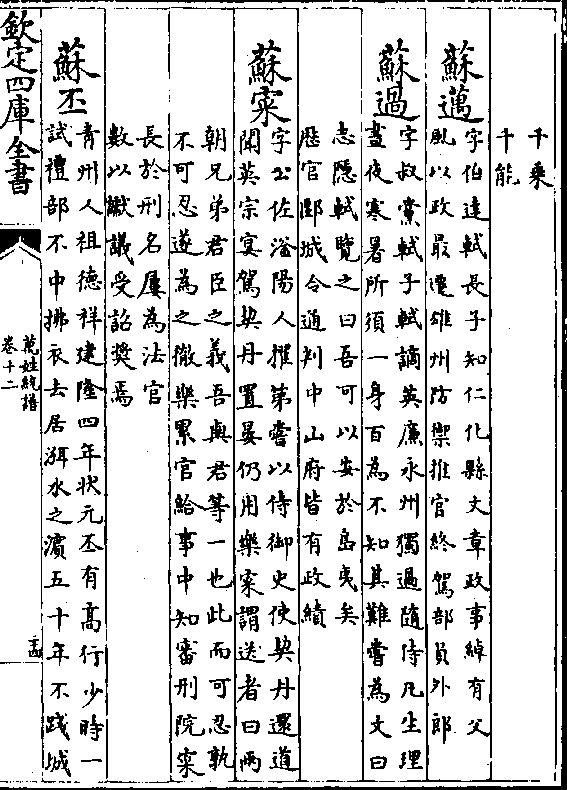 千乘
千能
蘇邁
字伯達軾長子知仁化縣文章政事綽有父
風以政最遷雄州防禦推官終駕部員外郎
蘇過
字叔黨軾子軾謫英廉永州獨過隨侍凡生理
晝夜寒暑所須一身百為不知其難嘗為文曰
志隱軾覽之曰吾可以安於島夷矣
歷官郾城令通判中山府皆有政績
蘇寀
字公佐滏陽人擢第嘗以侍御史使契丹還道
聞英宗宴駕契丹置宴仍用樂寀謂送者曰兩
朝兄弟君臣之義吾與君等一也此而可忍孰
不可忍遂為之徹樂累官給事中知審刑院寀
長於刑名屢為法官
數以讞議受詔奬焉
蘇丕
青州人祖德祥建隆四年狀元丕有高行少時一
試禮部不中拂衣去居洱水之濵五十年不踐城
欽定四庫全書
萬姓統譜
卷十二